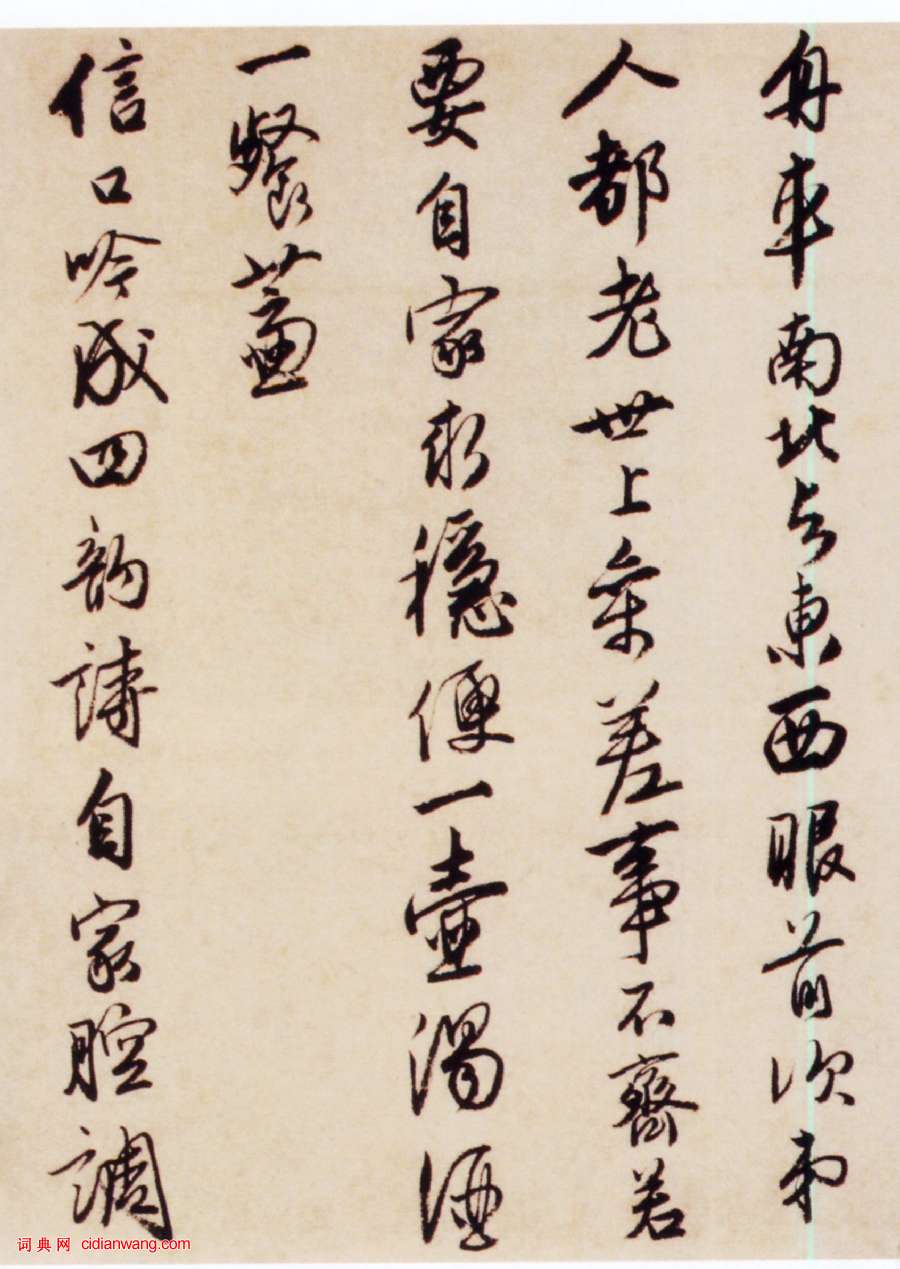 舟車南北与東西眼前次弟
人都老世上參差事不齊若
要自家求穩便一壺濁酒
一餐虀
信口吟成四韵詩自家腔調
词典网 cidianwang.com